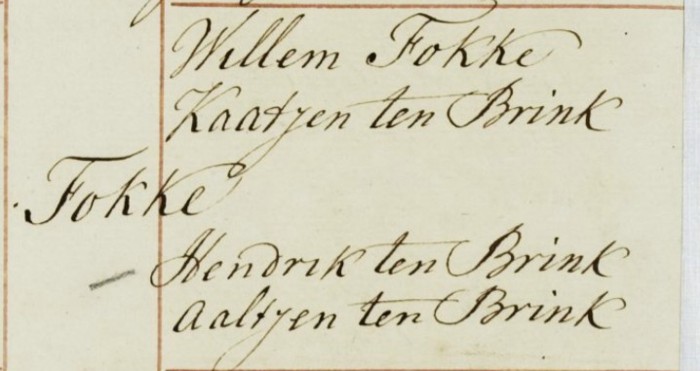 Willem Fokke
Kaatjen ten Brink
Fokke
Hendrik ten Brink
Aaltjen ten Brink